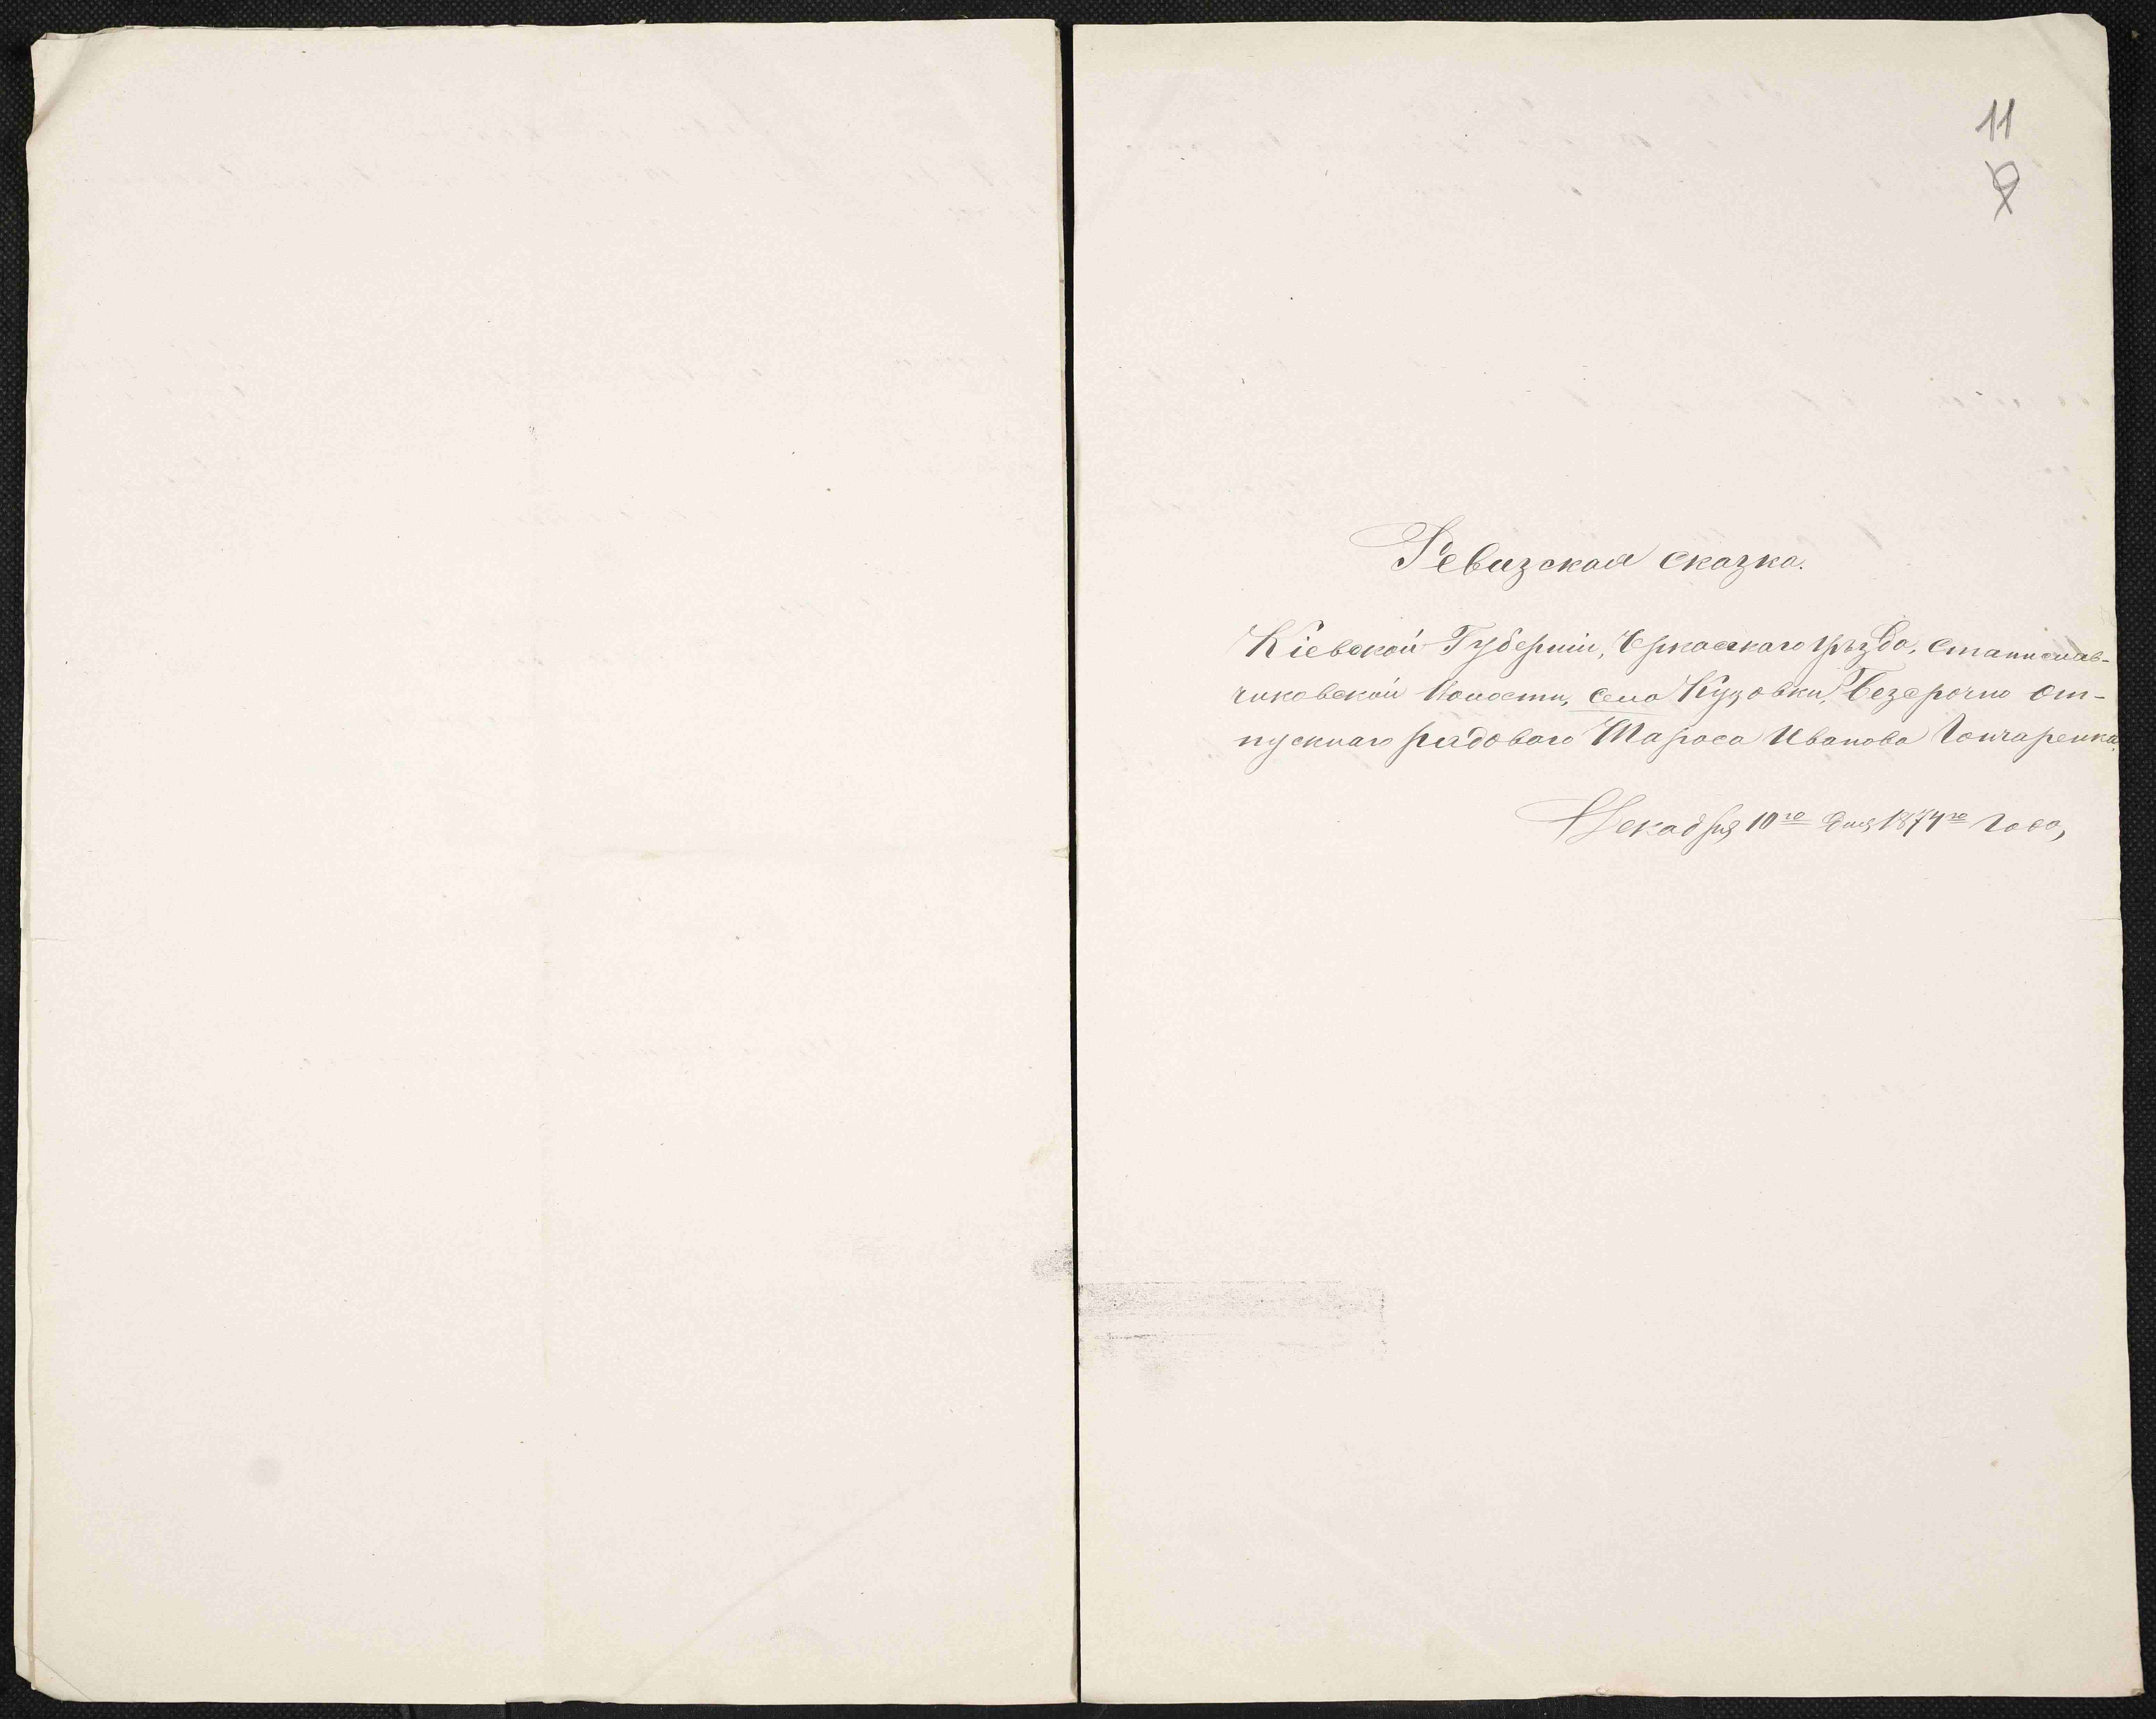 11
Ревизская сказка.
Кіевской Губерніи, Черкасскаго уѣзда, Станислав-
чиковской Волости, села Кузовки, безсрочно от-
пускнаго рядоваго Тараса Иванова Гончаренка,
Декабря 10го дня 1874го года,